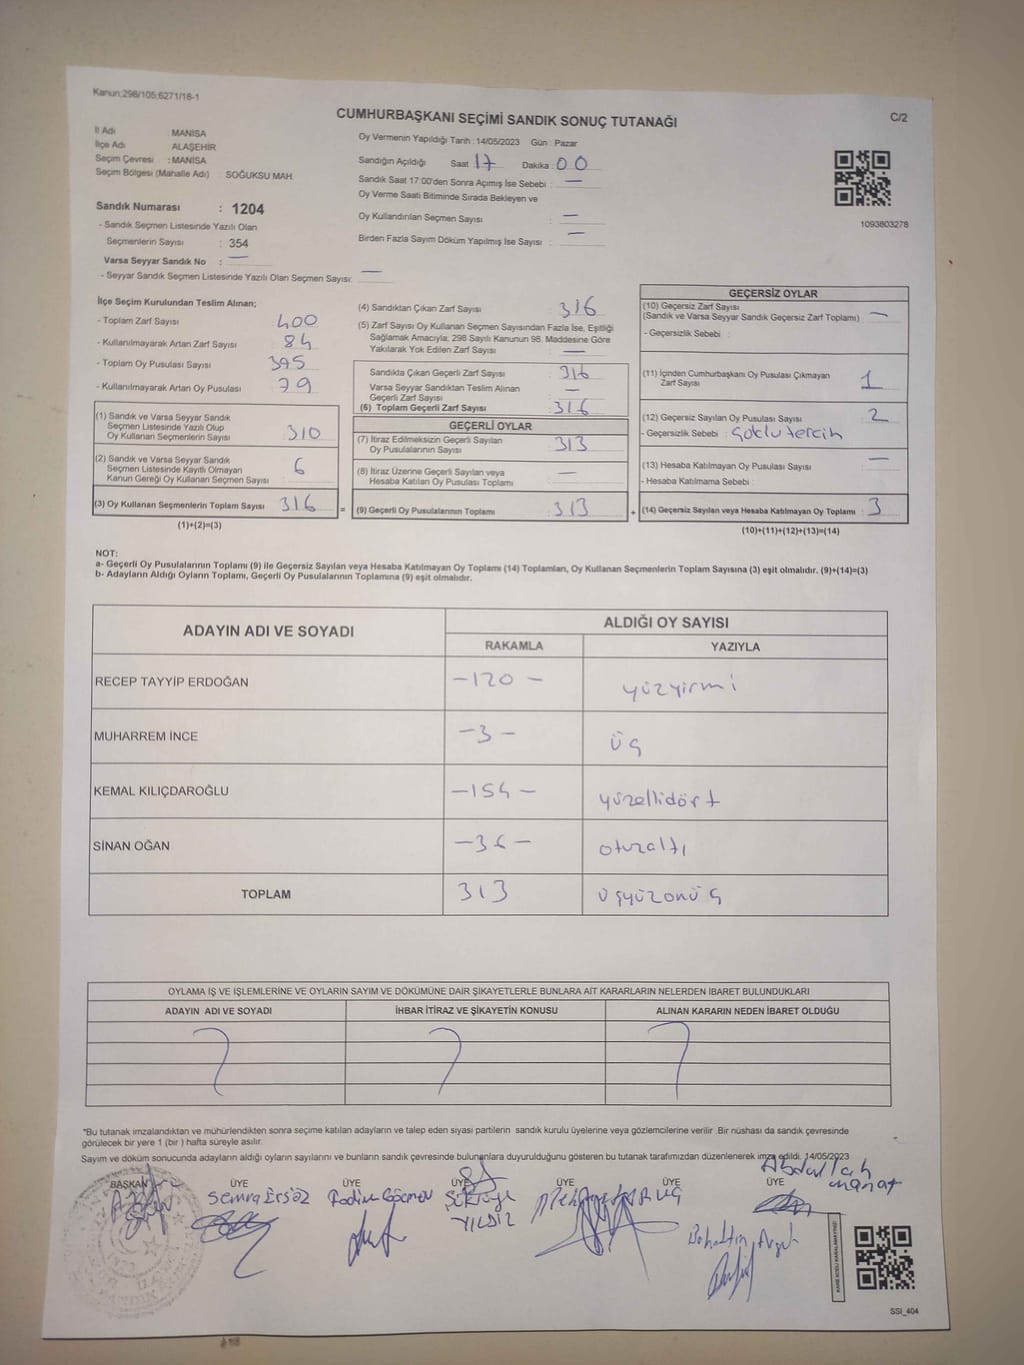 Kanun;298/105;6271/18-1
CUMHURBAŞKANI SEÇİMİ SANDIK SONUÇ TUTANAĞI
C/2
İl Adı : MANİSA
İlçe Adı : ALAŞEHİR
Seçim Çevresi : MANİSA
Seçim Bölgesi (Mahalle Adı) : SOĞUKSU MAH.
Sandık Numarası : 1204
- Sandık Seçmen Listesinde Yazılı Olan
Seçmenlerin Sayısı : 354
Varsa Seyyar Sandık No : —
- Seyyar Sandık Seçmen Listesinde Yazılı Olan Seçmen Sayısı: —
Oy Vermenin Yapıldığı Tarih : 14/05/2023 Gün : Pazar
Sandığın Açıldığı Saat 17 Dakika : 00
Sandık Saat 17:00'den Sonra Açımış İse Sebebi : —
Oy Verme Saati Bitiminde Sırada Bekleyen ve
Oy Kullandırılan Seçmen Sayısı : —
Birden Fazla Sayım Döküm Yapılmış İse Sayısı : —
1093803278
İlçe Seçim Kurulundan Teslim Alınan;
- Toplam Zarf Sayısı : 400
- Kullanılmayarak Artan Zarf Sayısı : 84
- Toplam Oy Pusulası Sayısı : 395
- Kullanılmayarak Artan Oy Pusulası : 79
(1) Sandık ve Varsa Seyyar Sandık
Seçmen Listesinde Yazılı Olup
Oy Kullanan Seçmenlerin Sayısı : 310
(2) Sandık ve Varsa Seyyar Sandık
Seçmen Listesinde Kayıtlı Olmayan
Kanun Gereği Oy Kullanan Seçmen Sayısı : 6
(3) Oy Kullanan Seçmenlerin Toplam Sayısı : 316 =
(1)+(2)=(3)
(4) Sandıktan Çıkan Zarf Sayısı : 316
(5) Zarf Sayısı Oy Kullanan Seçmen Sayısından Fazla İse, Eşitliği
Sağlamak Amacıyla; 298 Sayılı Kanunun 98. Maddesine Göre
Yakılarak Yok Edilen Zarf Sayısı : —
Sandıkta Çıkan Geçerli Zarf Sayısı : 316
Varsa Seyyar Sandıktan Teslim Alınan
Geçerli Zarf Sayısı : —
(6) Toplam Geçerli Zarf Sayısı : 316
GEÇERLİ OYLAR
(7) İtiraz Edilmeksizin Geçerli Sayılan
Oy Pusulalarının Sayısı : 313
(8) İtiraz Üzerine Geçerli Sayılan veya
Hesaba Katılan Oy Pusulası Toplamı : —
(9) Geçerli Oy Pusulalarının Toplamı : 313 +
GEÇERSİZ OYLAR
(10) Geçersiz Zarf Sayısı
(Sandık ve Varsa Seyyar Sandık Geçersiz Zarf Toplamı) : —
- Geçersizlik Sebebi :
(11) İçinden Cumhurbaşkanı Oy Pusulası Çıkmayan
Zarf Sayısı : 1
(12) Geçersiz Sayılan Oy Pusulası Sayısı : 2
- Geçersizlik Sebebi : Çoklu tercih
(13) Hesaba Katılmayan Oy Pusulası Sayısı : —
- Hesaba Katılmama Sebebi :
(14) Geçersiz Sayılan veya Hesaba Katılmayan Oy Toplamı : 3
(10)+(11)+(12)+(13)=(14)
NOT:
a- Geçerli Oy Pusulalarının Toplamı (9) ile Geçersiz Sayılan veya Hesaba Katılmayan Oy Toplamı (14) Toplamları, Oy Kullanan Seçmenlerin Toplam Sayısına (3) eşit olmalıdır. (9)+(14)=(3)
b- Adayların Aldığı Oyların Toplamı, Geçerli Oy Pusulalarının Toplamına (9) eşit olmalıdır.
ADAYIN ADI VE SOYADI
ALDIĞI OY SAYISI
RAKAMLA YAZIYLA
RECEP TAYYİP ERDOĞAN -120- yüzyirmi
MUHARREM İNCE -3- üç
KEMAL KILIÇDAROĞLU -154- yüzellidört
SİNAN OĞAN -36- otuzaltı
TOPLAM 313 üçyüzonüç
OYLAMA İŞ VE İŞLEMLERİNE VE OYLARIN SAYIM VE DÖKÜMÜNE DAİR ŞİKAYETLERLE BUNLARA AİT KARARLARIN NELERDEN İBARET BULUNDUKLARI
ADAYIN ADI VE SOYADI İHBAR İTİRAZ VE ŞİKAYETİN KONUSU ALINAN KARARIN NEDEN İBARET OLDUĞU
*Bu tutanak imzalandıktan ve mühürlendikten sonra seçime katılan adayların ve talep eden siyasi partilerin sandık kurulu üyelerine veya gözlemcilerine verilir .Bir nüshası da sandık çevresinde
görülecek bir yere 1 (bir ) hafta süreyle asılır.
Sayım ve döküm sonucunda adayların aldığı oyların sayılarını ve bunların sandık çevresinde bulunanlara duyurulduğunu gösteren bu tutanak tarafımızdan düzenlenerek imza edildi. 14/05/2023
BAŞKAN ÜYE ÜYE ÜYE ÜYE ÜYE
Semra Ersöz
Şükrüye
YILDIZ
Abdullah
manat
SSI_404